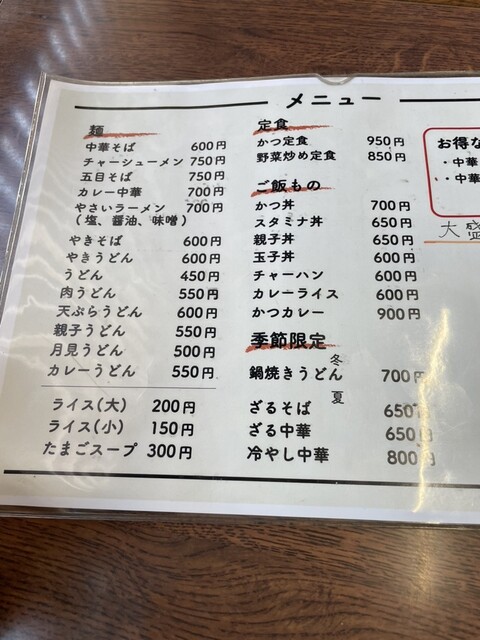 メニュー
麺
中華そば 600円
チャーシューメン 750円
五目そば 750円
カレー中華 700円
やさいラーメン 700円
(塩、醤油、味噌)
やきそば 600円
やきうどん 600円
うどん 450円
肉うどん 550円
天ぷらうどん 600円
親子うどん 550円
月見うどん 500円
カレーうどん 550円
ライス(大) 200円
ライス(小) 150円
たまごスープ 300円
定食
かつ定食 950円
野菜炒め定食 850円
ご飯もの
かつ丼 700円
スタミナ丼 650円
親子丼 650円
玉子丼 600円
チャーハン 600円
カレーライス 600円
かつカレー 900円
季節限定
冬
鍋焼きうどん 700円
夏
ざるそば 650円
ざる中華 650円
冷やし中華 800円
お得な
・中華
・中華
大盛